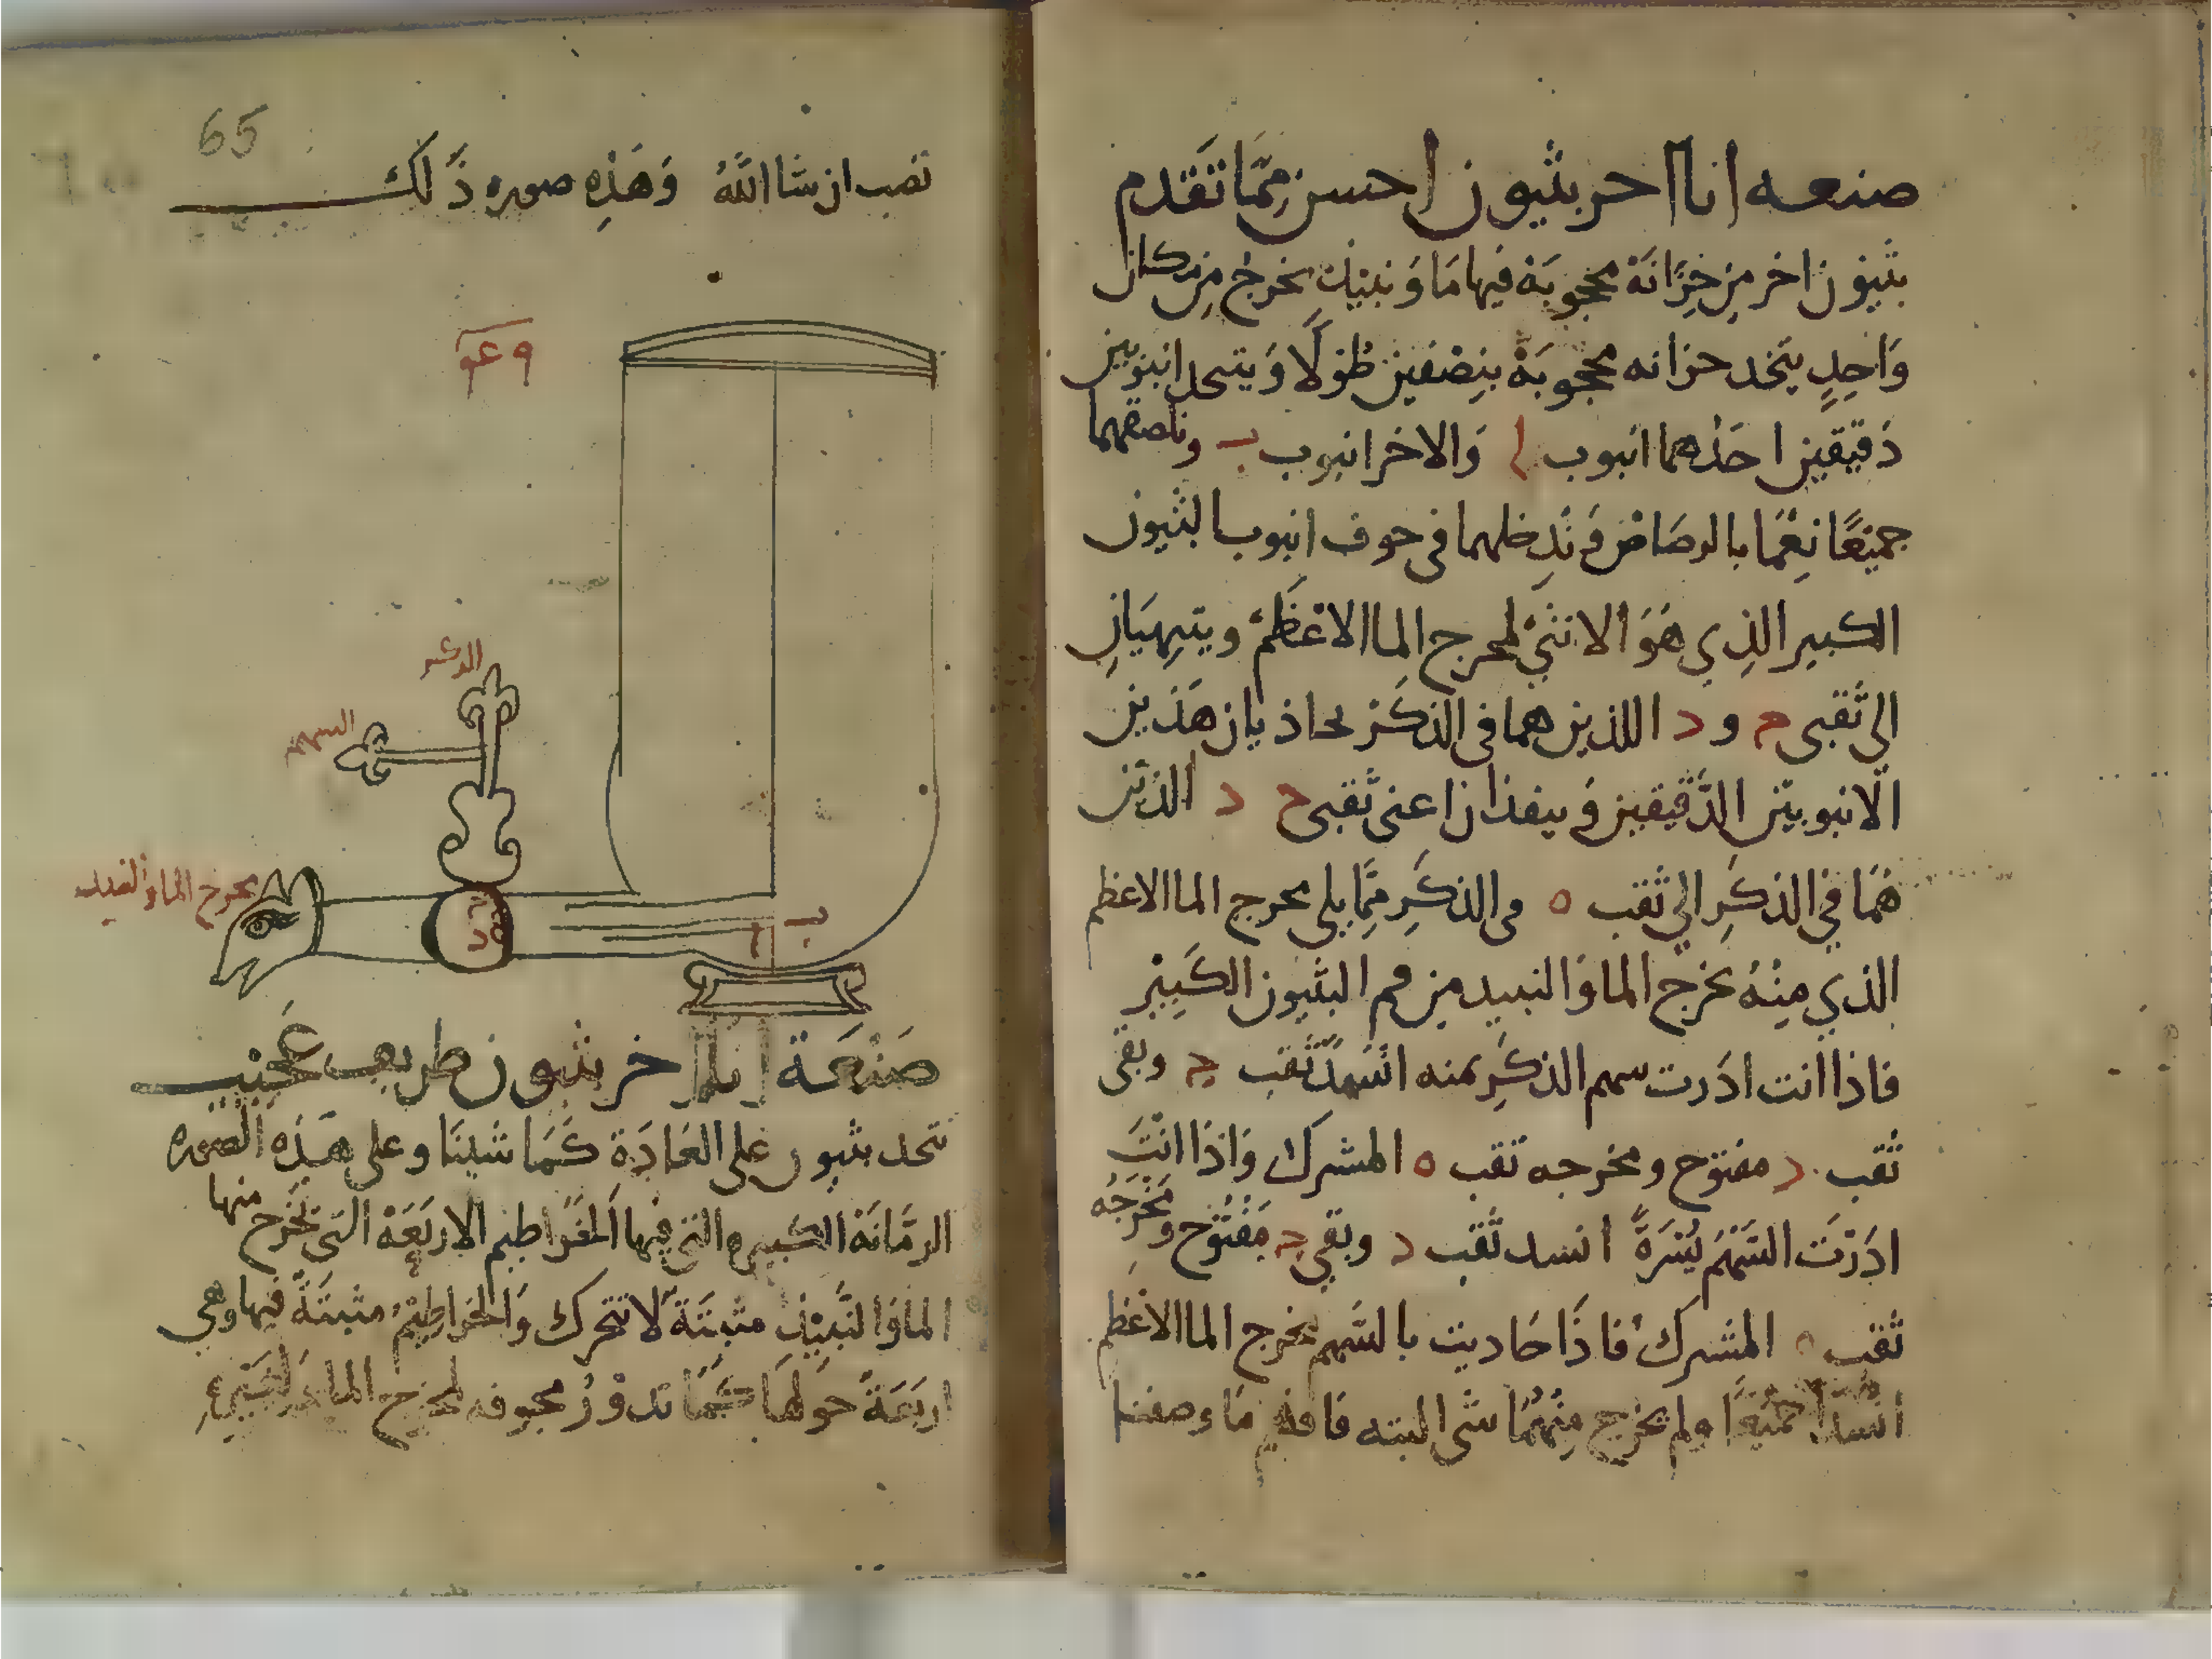 صنعه انا اخر بثيون احسن مِمَّا تَقدم
بثيون اخر مِن خِزَانَة محجوبَة فيها مَا وَ نبيذ يخرج مِن مكان
وَاحِدٍ يتخد خزانه محجوبَةْ بنِصْفين طُولًا وَ يتحد انبوبين
دَقيقين احَدُهما انبوب ا وَالاخر انبوب ب ونلصقهما
جميْعًا نِعْمَا بالرصَاصْ وَ نُدخلهما فى جوف انبوب البثيون
الكبير الذِي هَوَ الانثي لمخرج الما الاعْظَمْ ويتهيَانِ
الي ثقبى ج و د اللذين هما فى الذكَر يحاذيان هَذين
الانبوبين الدَّقيقين وَ ينفذان اعنى ثقبى ج د الذين
هُمَا في الذكَرِ الي ثقب ه فى الذكَرِ مِمَّا يلى مخرج الما الاعظم
الذي مِنْهُ يخرج الما وَالنبيد مِن فم البثيون الكَبِيْر
فاذا انت ادَرت سهم الذكَرِ يمنه انْسَدَّ ثَقب ج وبقى
ثقب د مفتوح ومخرجه ثقب ه المشترك وَاذَا انْتَ
ادَرْتَ السَّهْمَ يُسْرَةً انسد ثقب د وبقي ج مَفْتُوْح ومَخْرَجُه
ثقب ه المشترك فاذَا حَاديت بالسَّهم مخرج الما الاعْظم
انسدا جميعًا ولم يخرج مِنْهُمَا شى البته فافهم مَا وصفنا
65
تصب ان شَا اللهُ وَهَذِه صوره ذَلك
الدكر
السهم
مخرج الما والنبيد
ه ج د
ا ب
صَنْعَة انا اخر بثيون طريف عَجيْب
نتخد بثيون على العَادَةِ كَمَا شينَا وعلى هَذِه الصوره
الرمَّانَة الكبيره التي فيها الخَراطيم الاربَعَة التى تخْرج منها
الما وَ النَّبيْذ مثبتَةً لا تتحرك وَالخراطِيْم مثبتَةً فيها وهي
اربَعَةً حَولهَا كَمَا تدوْرُ مجوفه لمخرج الما